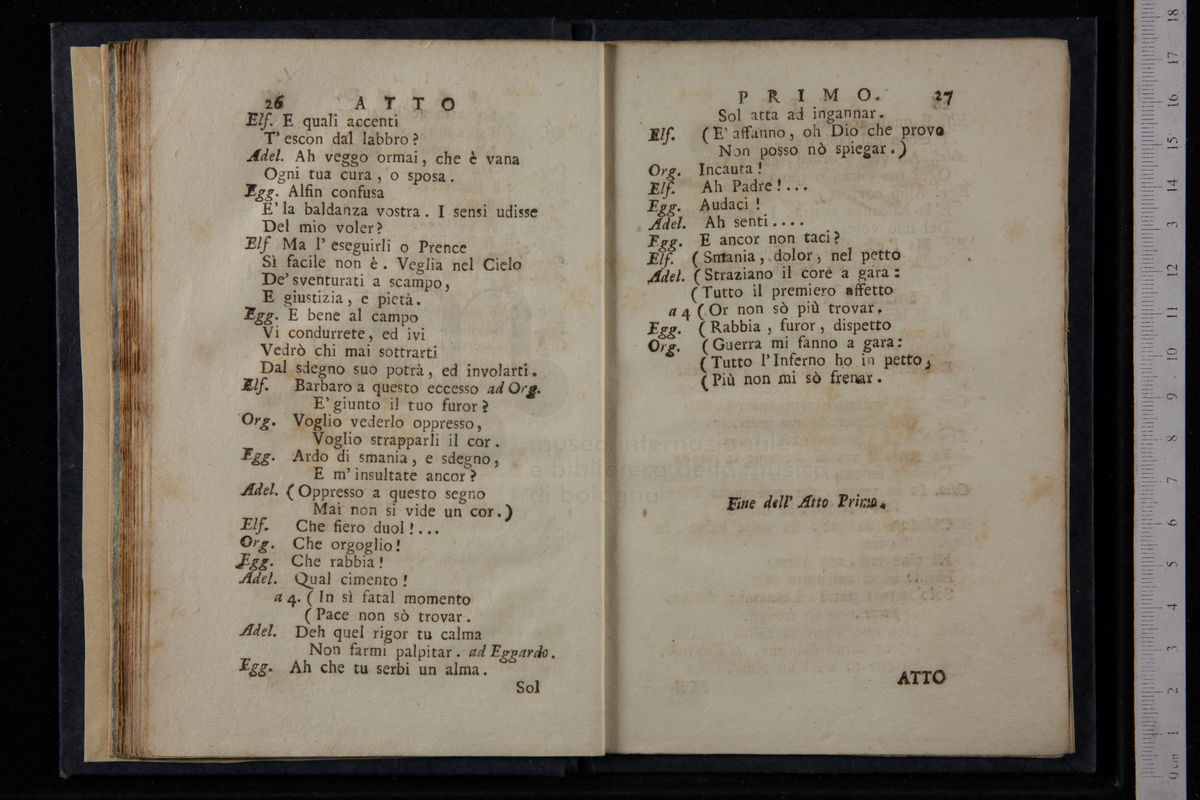 26 ATTO
Elf. E quali accenti
T' escon dal labbro?
Adel. Ah veggo ormai, che è vana
Ogni tua cura, o sposa.
Egg. Alfin confusa
E' la baldanza vostra. I sensi udisse
Del mio voler?
Elf Ma l' eseguirli o Prence
Sì facile non è. Veglia nel Cielo
De' sventurati a scampo,
E giustizia, e pietà.
Egg. E bene al campo
Vi condurrete, ed ivi
Vedrò chi mai sottrarti
Dal sdegno suo potrà, ed involarti.
Elf. Barbaro a questo eccesso ad Org.
E' giunto il tuo furor?
Org. Voglio vederlo oppresso,
Voglio strapparli il cor.
Egg. Ardo di smania, e sdegno,
E m' insultate ancor?
Adel. (Oppresso a questo segno
Mai non si vide un cor.)
Elf. Che fiero duol!...
Org. Che orgoglio!
Egg. Che rabbia!
Adel. Qual cimento!
a 4. (In sì fatal momento
(Pace non sò trovar.
Adel. Deh quel rigor tu calma
Non farmi palpitar. ad Eggardo.
Egg. Ah che tu serbi un alma.
Sol
PRIMO. 27
Sol atta ad ingannar.
Elf. (E' affanno, oh Dio che provo
Non posso nò spiegar.)
Org. Incauta!
Elf. Ah Padre!...
Egg. Audaci!
Adel. Ah senti....
Egg. E ancor non taci?
Elf. (Smania, dolor, nel petto
Adel. (Straziano il core a gara:
(Tutto il premiero affetto
a 4 (Or non sò più trovar.
Egg. (Rabbia, furor, dispetto
Org. (Guerra mi fanno a gara:
(Tutto l' Inferno ho in petto,
(Più non mi sò frenar.
Fine dell' Atto Primo.
ATTO
museo internazionale
e biblioteca della musica
di bologna
0 cm 1 2 3 4 5 6 7 8 9 10 11 12 13 14 15 16 17 18